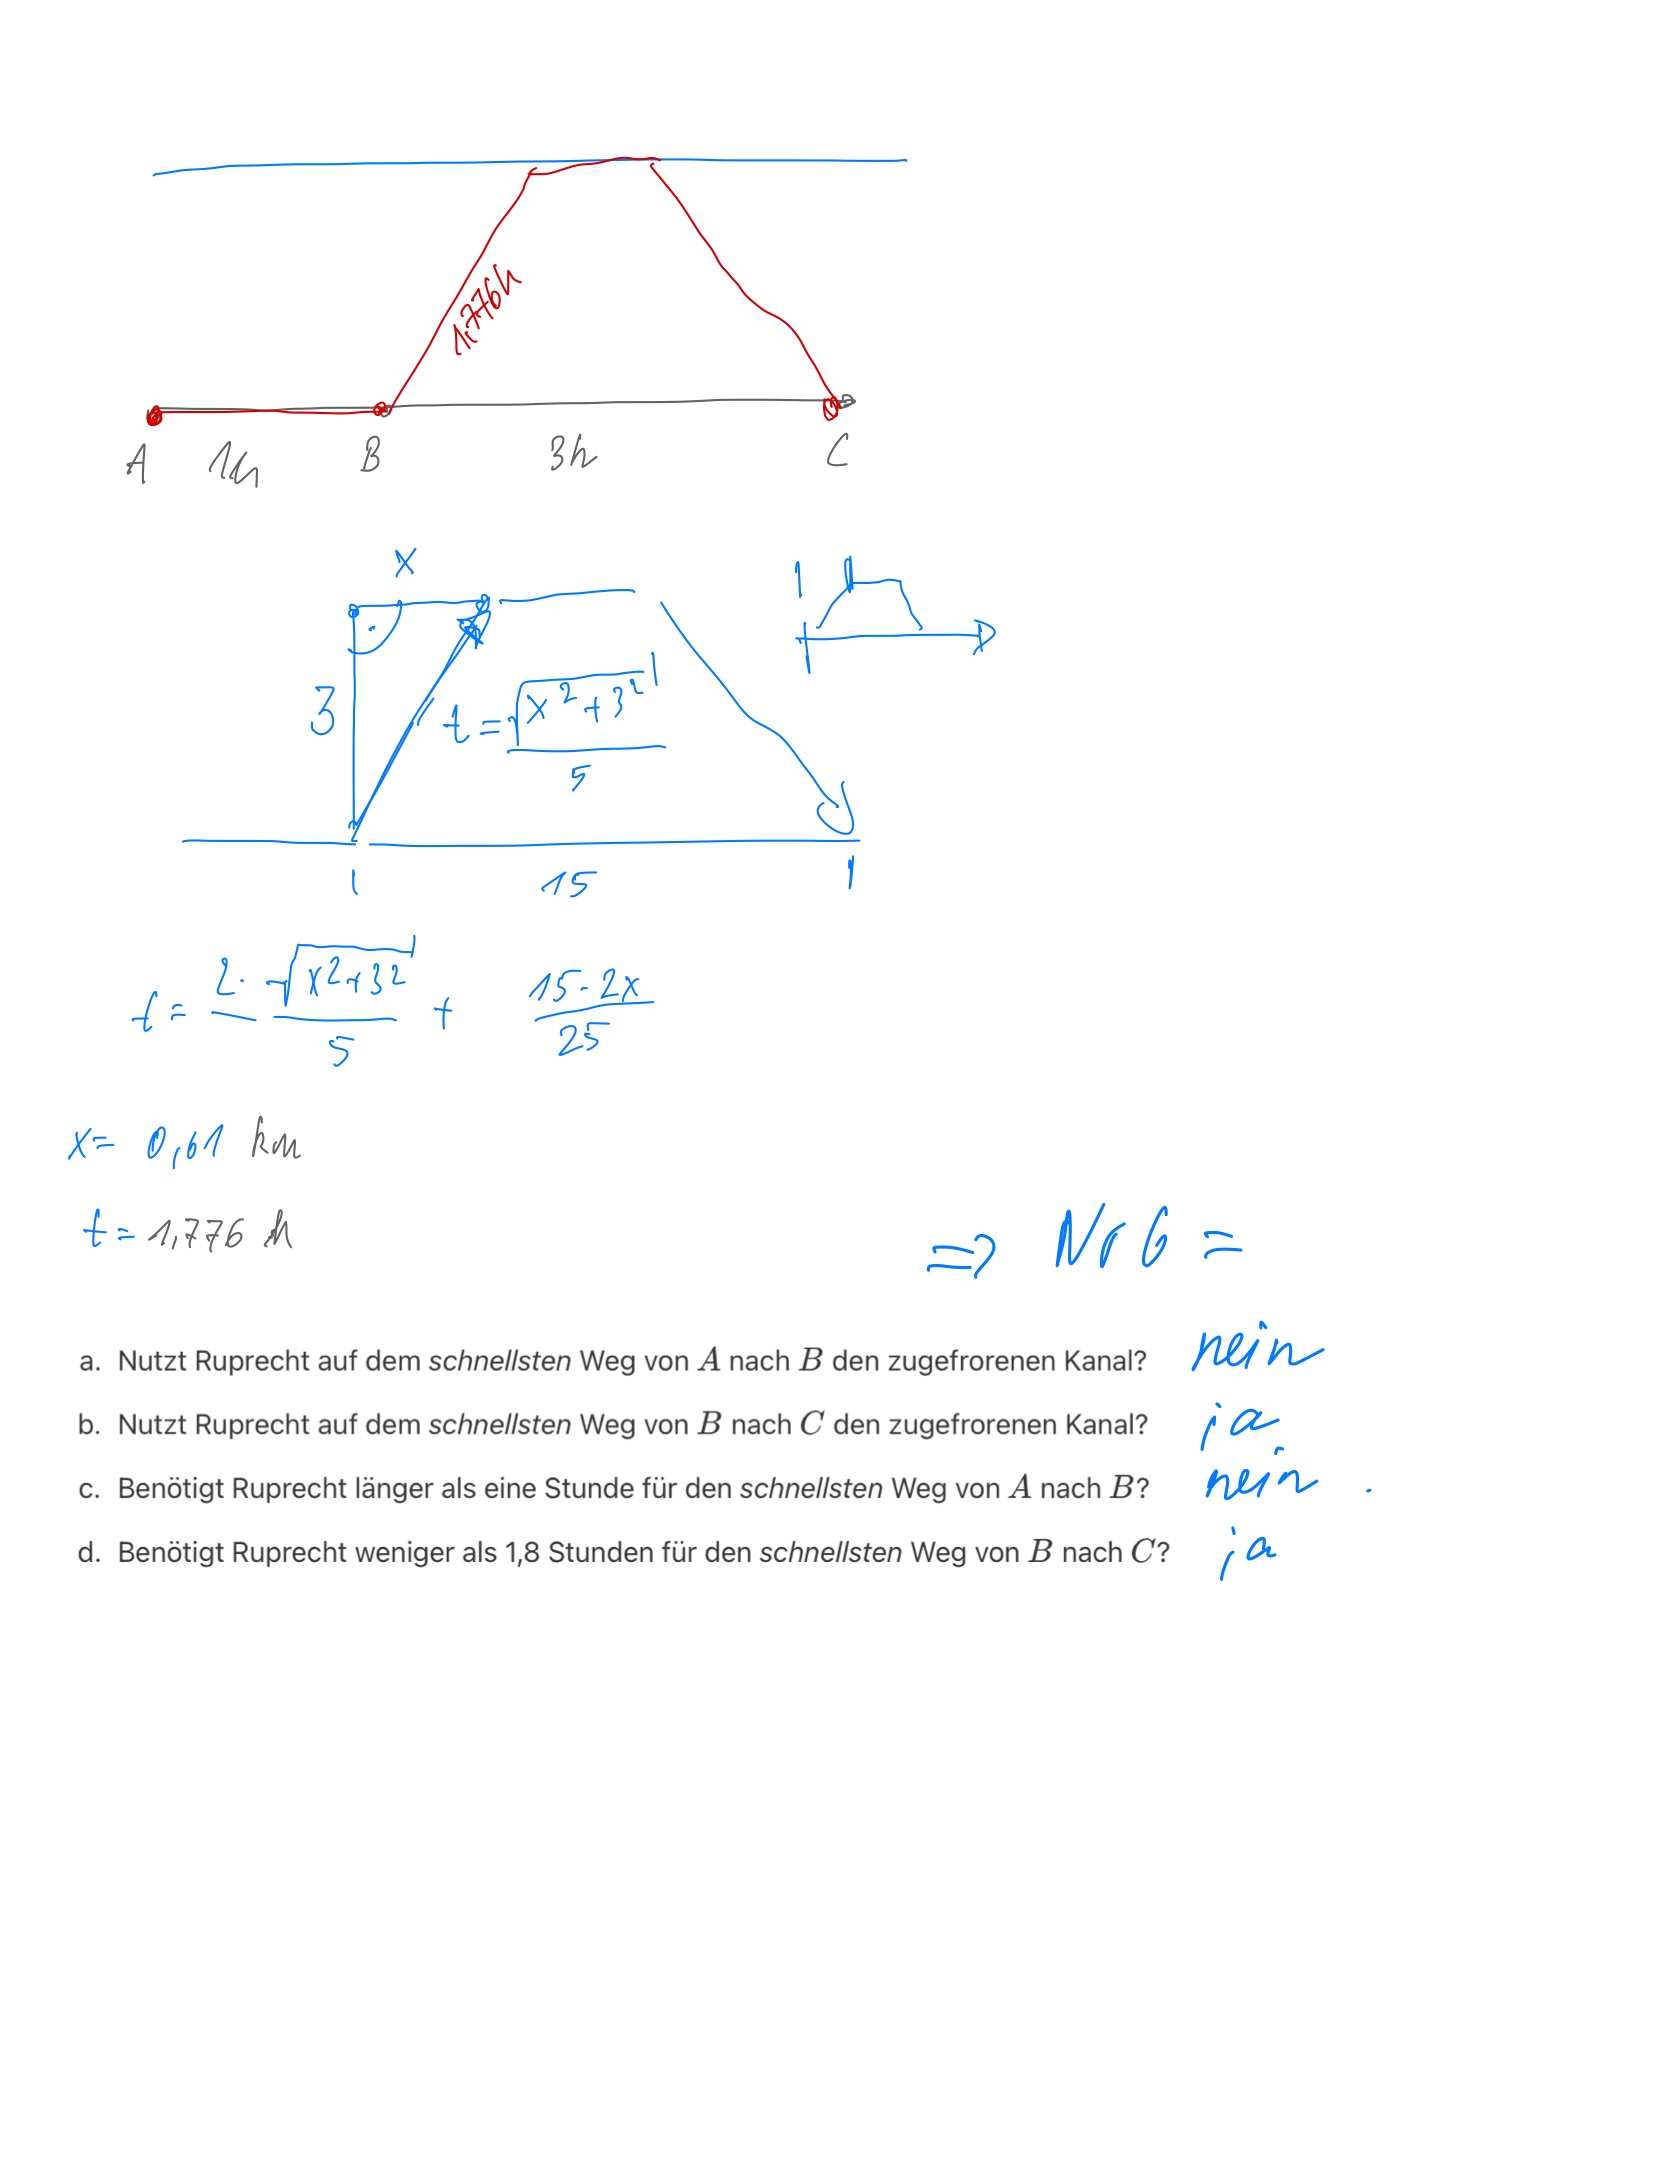 1,776h
A 1h B 3h C
x
3
t = √(x² + 3²) / 5
15
t = 2 · √(x² + 3²) / 5 + (15 - 2x) / 25
x = 0,61 km
t = 1,776 h
⇒ Nr 6 =
a. Nutzt Ruprecht auf dem schnellsten Weg von A nach B den zugefrorenen Kanal? nein
b. Nutzt Ruprecht auf dem schnellsten Weg von B nach C den zugefrorenen Kanal? ja
c. Benötigt Ruprecht länger als eine Stunde für den schnellsten Weg von A nach B? nein .
d. Benötigt Ruprecht weniger als 1,8 Stunden für den schnellsten Weg von B nach C? ja